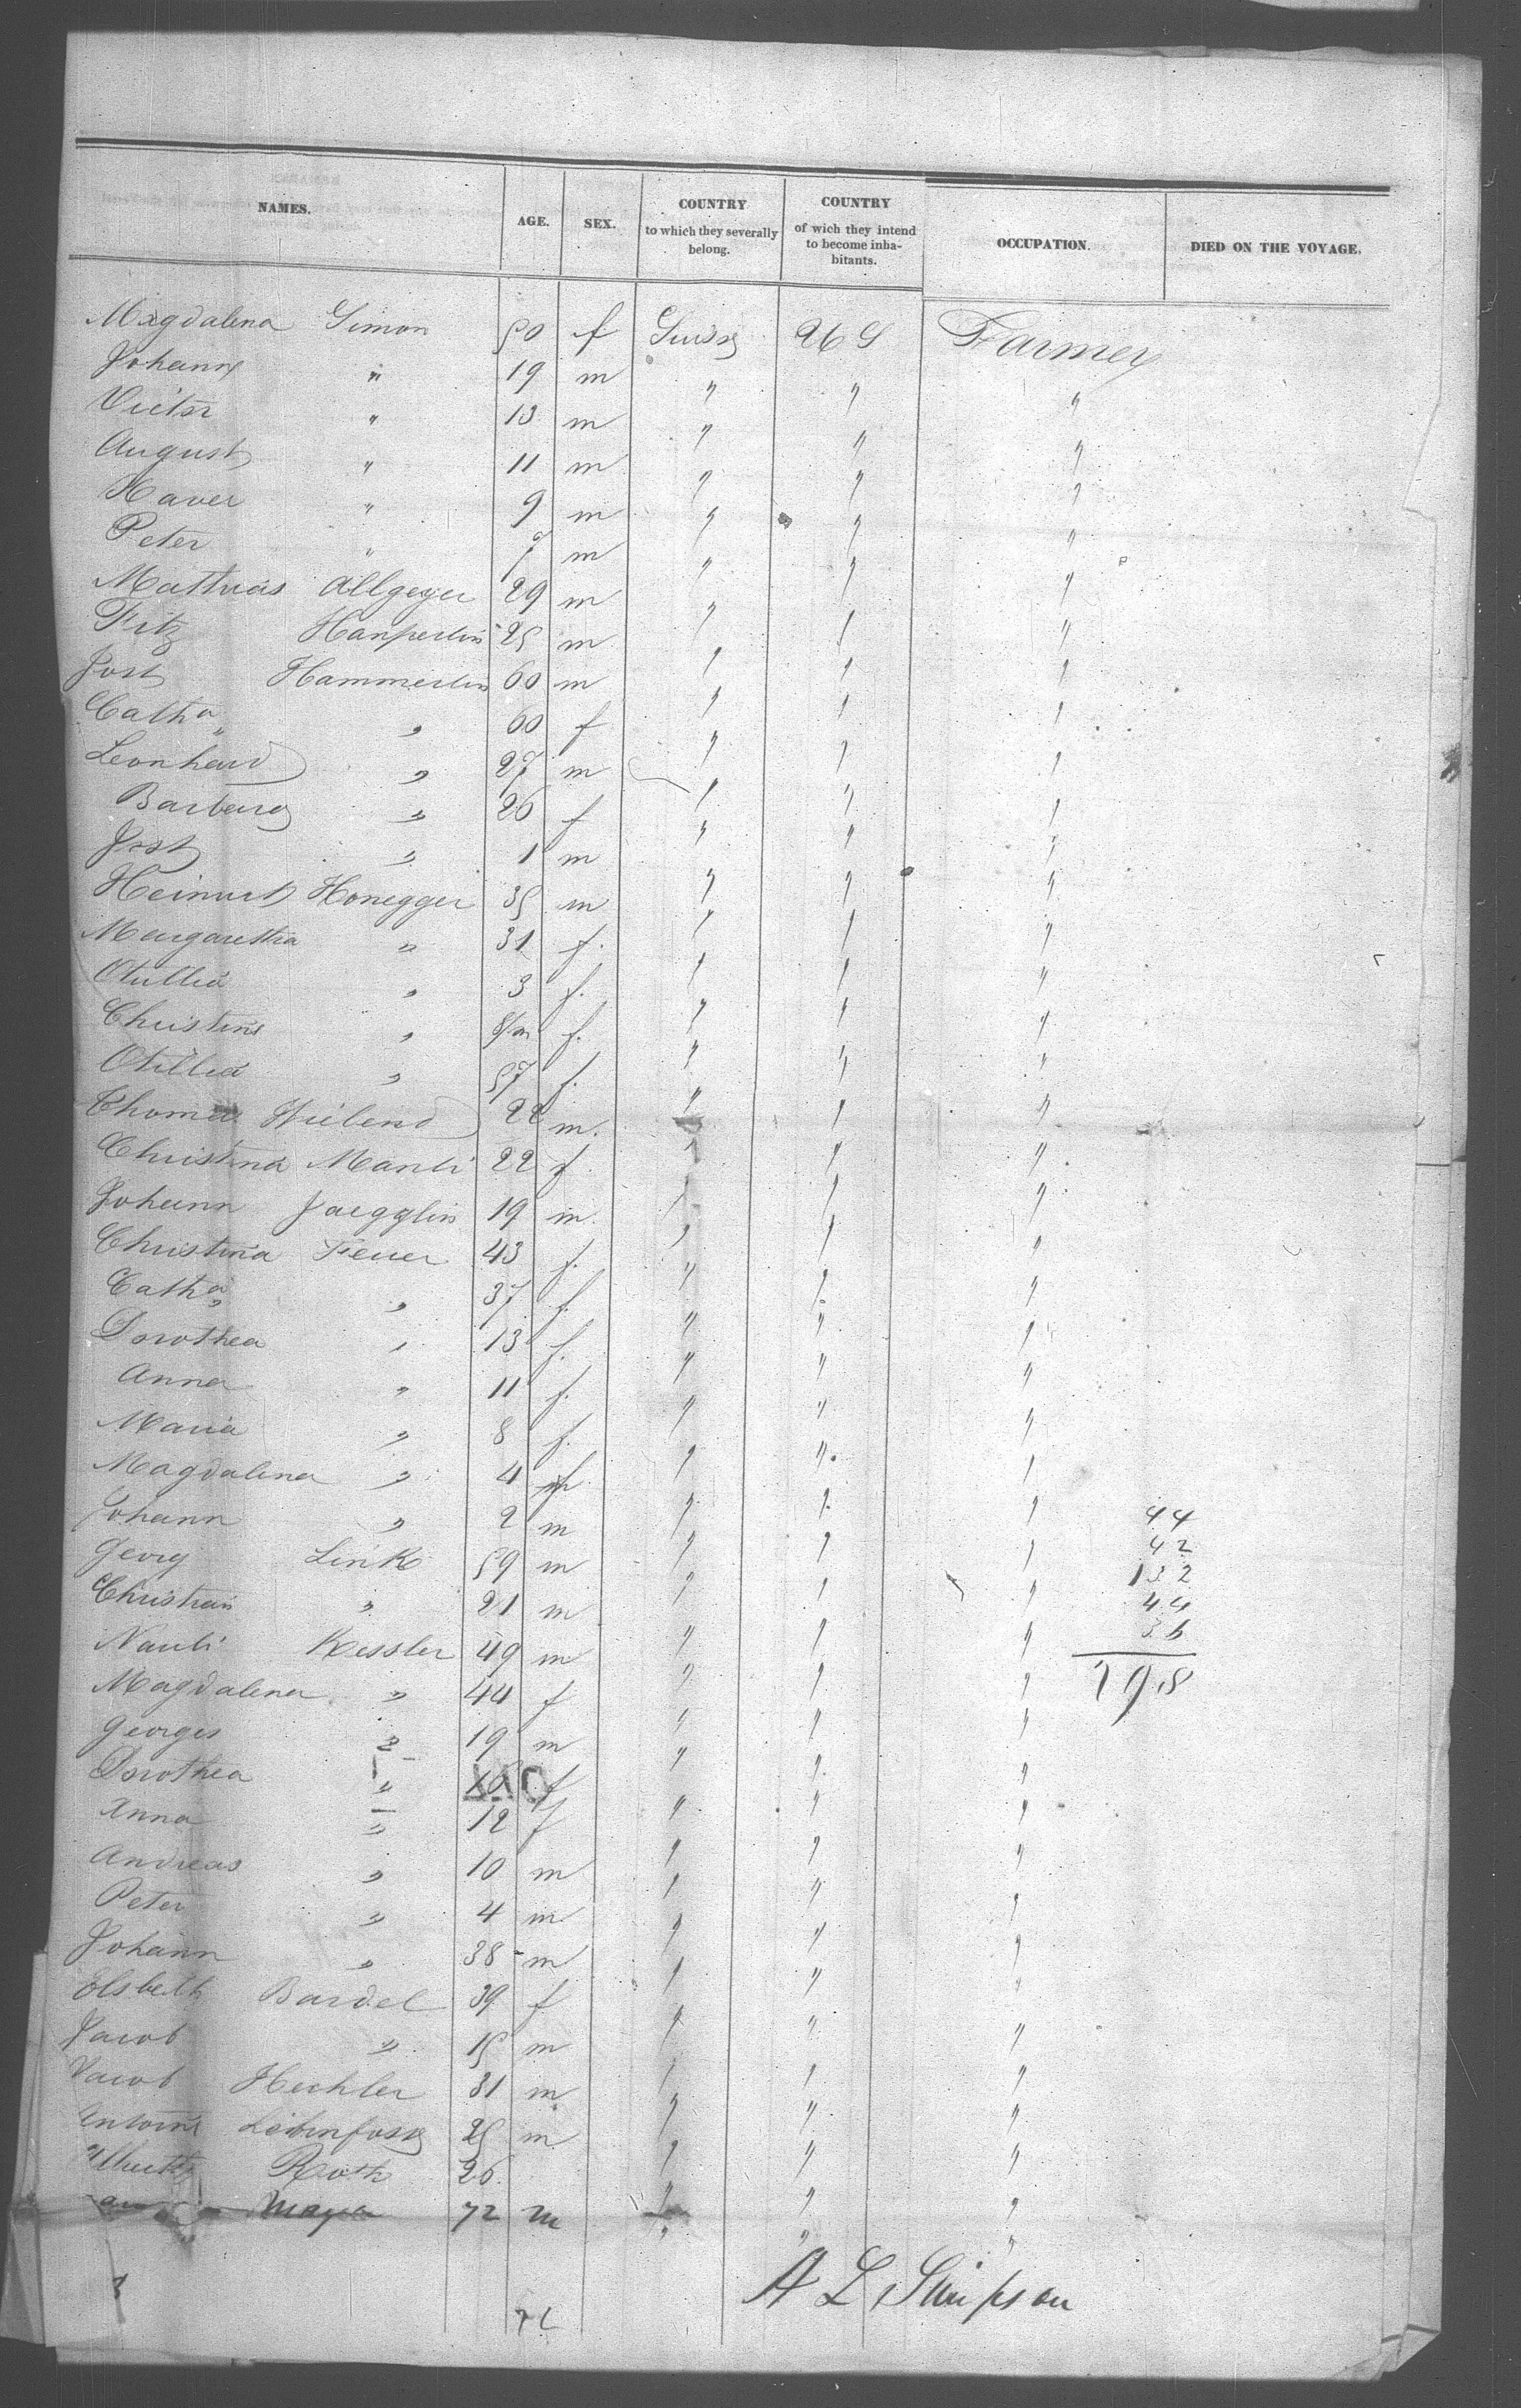 NAMES. AGE. SEX. COUNTRY to which they severally belong. COUNTRY of wich they intend to become inhabitants. OCCUPATION. DIED ON THE VOYAGE.
Magdalena Simon 50 f Suisse Farmer
Johann " 19 m " " "
Victor " 13 m " " "
August " 11 m " " "
Xaver " 9 m " " "
Peter " 7 m " " "
Mathias Allgeyer 29 m " " "
Fritz 25 m " " "
Jost Hammerlin 60 m " " "
Catha " 60 f " " "
Leonhard " 27 m " " "
Barbara " 26 f " " "
Jost " 1 m " " "
Heinrich Honegger 35 m " " "
Margaretha " 31 f. " " "
Otillia " 3 f. " " "
Christina " 8/m f. " " "
Otillia " 57 f. " " "
Thomas Wieland 22 m. " " "
Christina Manli 22 f " " "
Johann Jaegglin 19 m. " " "
Christina 43 f. " " "
Catha " 37 f. " " "
Dorothea " 13 f. " " "
Anna " 11 f. " " "
Maria " 8 f. " " "
Magdalena " 4 f " " "
Johann " 2 m " " "
Georg Link 59 m " " "
Christian " 21 m " " "
Kessler 49 m " " "
Magdalena " 44 f " " "
Georges " 19 m " " "
Dorothea " f " " "
Anna " 12 f " " "
Andreas " 10 m " " "
Peter " 4 m " " "
Johann " 38 m " " "
Elsbeth Bardel 39 f " " "
Jacob " 15 m " " "
Jacob Hechler 31 m " " "
Antoine 25 m " " "
Roth 26 " " "
Mayer 72 m " " "
44
42
132
44
36
198
A L Simpson